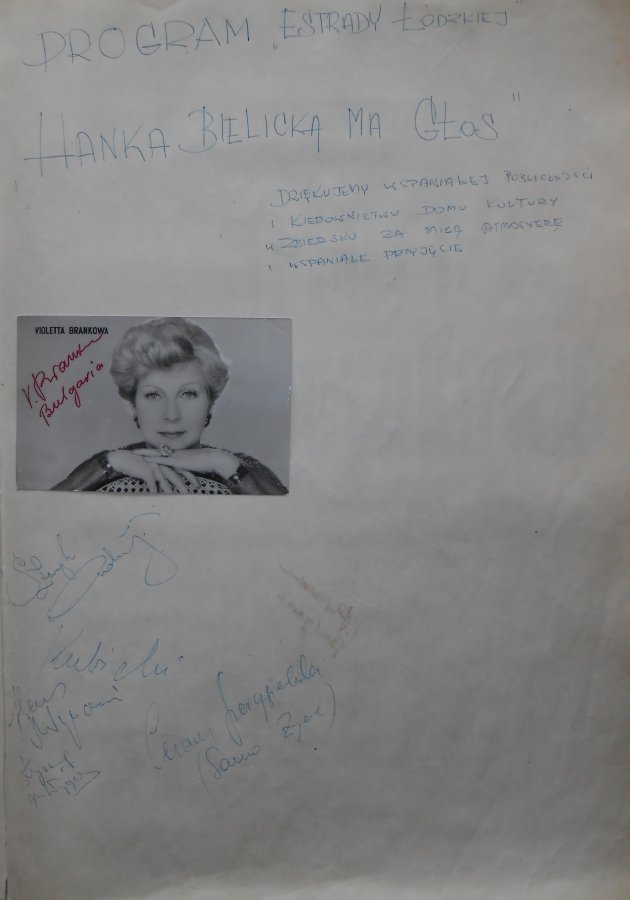 PROGRAM „ESTRADY ŁÓDZKIEJ"
„HANKA BIELICKA MA GŁOS"
DZIĘKUJEMY WSPANIAŁEJ PUBLICZNOŚCI
I KIEROWNICTWU DOMU KULTURY
W ZBIERSKU ZA MIŁĄ ATMOSFERĘ
I WSPANIAŁE PRZYJĘCIE
VIOLETTA BRANKOWA
V. Brankowa
Bulgaria
Kubicki
Cezary
(Samo Życie)